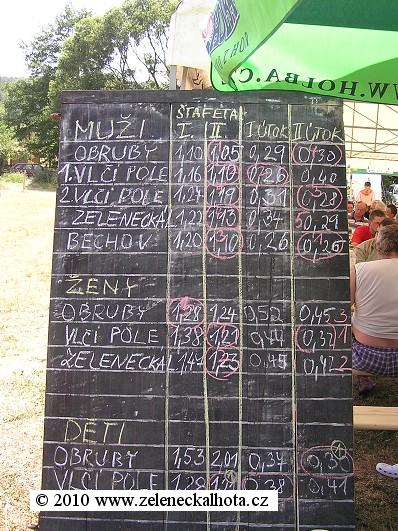 WWW.HOLBA.C
ŠTAFETA
MUŽI I. II. I ÚTOK II ÚTOK
OBRUBY 1,10 1,05 0,29 0,30
1.VLČÍ POLE 1,16 1,10 0,26 0,40
2.VLČÍ POLE 1,24 1,19 0,31 0,28
ZELENECKÁ L 1,22 1,13 0,34 0,29
BECHOV 1,20 1,10 0,26 0,26
ŽENY
OBRUBY 1,20 1,24 0,52 0,45 3
VLČÍ POLE 1,38 1,21 0,44 0,32 1
ZELENECKÁ L 1,47 1,23 0,45 0,42 2
DĚTI
OBRUBY 1,53 2,01 0,34 0,30
VLČÍ POLE 0,38 0,41
© 2010 www.zeleneckalhota.cz